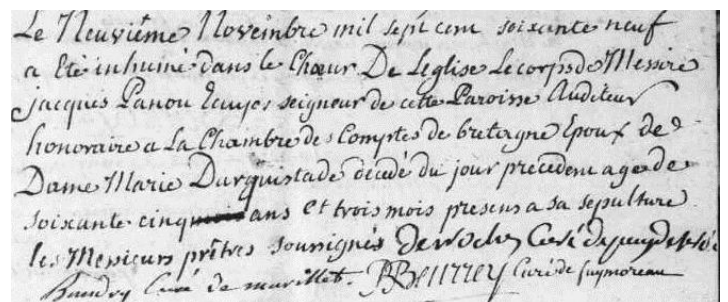 Le Neuviéme Novembre mil sept cent soixante neuf
a Eté inhumé dans le Chœur De Leglise Le corps de Messire
jacques Panou Ecuyer seigneur de cette Paroisse Auditeur
honoraire a La Chambre des Comptes de bretagne Epoux de
Dame Marie Darquistade décédé du jour précédent age de
soixante cinq ans et trois mois presens a sa sepulture
les Messieurs prêtres soussignés
Baudry Curé de Curé de puymoreau